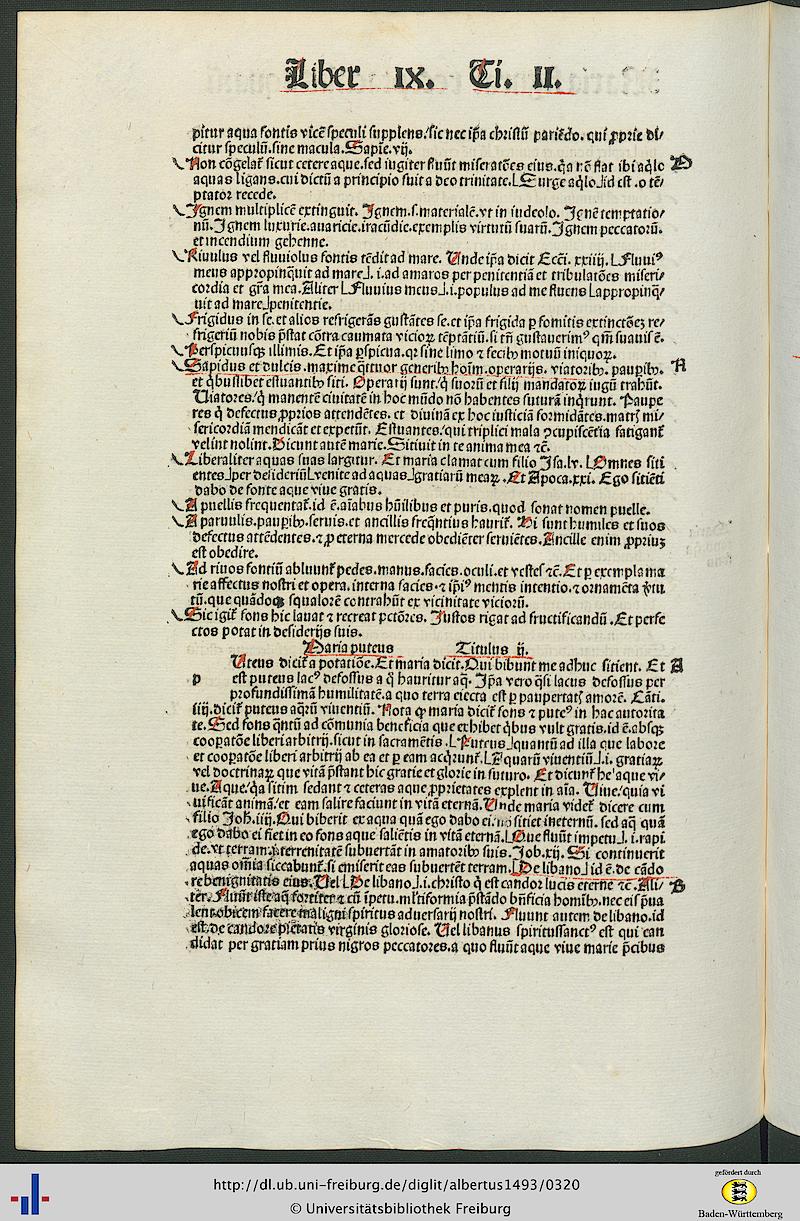 Liber IX. Ti. II.
pitur aqua fontis vicē speculi supplens/sic nec ip̄a christū pariēdo. qui ꝓprie di/
citur speculū.sine macula.Sapie.vij.
Non cōgelaṫ sicut cetere aque.sed iugiter fluūt miseratōes eius.q̄a nō flat ibi aq̄lo D
aquas ligans.cui dictū a principio fuit a deo trinitate.⌊Surge aq̄lo⌋id est .o tē/
ptator recede.
Ignem multiplicē extinguit. Ignem.s.materialē.vt in iudeolo. Ignē temptatio/
nū.Ignem luxurie.auaricie.iracūdie.exemplis virtutū suarū.Ignem peccatorū.
et incendium gehenne.
Riuulus vel fluuiolus fontis tēdit ad mare. Unde ip̄a dicit Ecci. xxiiij.⌊Fluuiꝰ
meus appropinq̄uit ad mare⌋. i.ad amaros per penitentiā et tribulatōes miseri/
cordia et gr̄a mea.Aliter⌊Fluuius meus⌋.i.populus ad me fluens⌊appropinq̄/
uit ad mare⌋penitentie.
Frigidus in se.et alios refrigerās gustātes se.et ip̄a frigida ꝑ fomitis extinctōeꝫ re/
frigeriū nobis p̄stat cōtra caumata vicioꝝ tēptatiū.si tn̄ gustauerimꝰ qm̄ suauis ē.
Perspicuusqꝫ illimis.Et ip̄a ꝑspicua.qꝛ sine limo ⁊ fecibꝫ motuū iniquoꝝ.
Sapidus et dulcis.maxime q̄ttuor generibꝫ hoīm.operarijs. viatoribꝫ. pauꝑibꝫ. N
et q̄buslibet estuantibꝫ siti. Operarij sunt/q̄ suorū et filij mandatoꝝ iugū trahūt.
Uiatores/q̄ manentē ciuitatē in hoc mūdo nō habentes futurā inq̄runt. Paupe
res q̄ defectus ꝓprios attendētes. et diuinā ex hoc iusticiā formidātes.matrꝫ mi/
sericordiā mendicāt et expetūt. Estuantes/qui triplici mala ꝯcupiscētia fatiganṫ
velint nolint.Dicunt autē marie.Sitiuit in te anima mea ⁊c̄.
Liberaliter aquas suas largitur. Et maria clamat cum filio Isa.lv.⌊Omnes siti
entes⌋per desideriū⌊venite ad aquas⌋gratiarū meaꝝ .Et Apoca.xxi. Ego sitiēti
dabo de fonte aque viue gratis.
A puellis frequentaṫ.id ē.aīabus hūilibus et puris.quod sonat nomen puelle.
A paruulis.pauꝑibꝫ.seruis.et ancillis freq̄ntius hauriṫ. Hi sunt humiles et suos
defectus attēdentes.⁊ ꝓ eterna mercede obediēter seruiētes.Ancille enim ꝓpriuꝫ
est obedire.
Ad riuos fontiū abluunṫ pedes.manus.facies.oculi.et vestes ⁊c̄.Et ꝑ exempla ma
rie affectus nostri et opera.interna facies.⁊ ip̄iꝰ mentis intentio.⁊ ornamēta v̄tu
tū.que quādoqꝫ squalorē contrahūt ex vicinitate viciorū.
Sic igiṫ fons hic lauat ⁊ recreat pctōres. Iustos rigat ad fructificandū .Et perfe
ctos potat in desiderijs suis.
Maria puteus Titulus ij.
Uteus diciṫ a potatiōe.Et maria dicit.Qui bibunt me adhuc sitient. Et A
p est puteus lacꝰ defossus a q̄ hauritur aq̄. Ip̄a vero q̄si lacus defossus per
profundissimā humilitatē.a quo terra eiecta est ꝑ paupertatꝫ amorē. Cāti.
iiij.diciṫ puteus aq̄rū viuentiū. Nota qꝙ maria diciṫ fons ⁊ puteꝰ in hac autorita
te.Sed fons q̄ntū ad cōmunia beneficia que exhibet q̄bus vult gratis.id ē.absqꝫ
cooꝑatōe liberi arbitrij.sicut in sacramētis.⌊Puteus⌋quantū ad illa que labore
et cooꝑatōe liberi arbitrij ab ea et ꝑ eam acq̄runṫ.⌊Aquarū viuentiū⌋.i. gratiaꝝ
vel doctrinaꝝ que vitā p̄stant hic gratie et glorie in futuro. Et dicunṫ heꝰ aque vi/
ue.Aque/q̄a sitim sedant ⁊ ceteras aque ꝓprietates explent in aīa. Uiue/quia vi
uificāt animā/et eam salire faciunt in vitā eternā.Unde maria videṫ dicere cum
filio Joh̄.iiij.Qui biberit ex aqua quā ego dabo ei.nō sitiet ineternū. sed aq̄ quā
ego dabo ei fiet in eo fons aque saliētis in vitā eternā.⌊Que fluūt impetu⌋.i.rapi
de.vt terram.⁊ terrenitatē subuertāt in amatoribꝫ suis. Job.xij. Si continuerit
aquas omīa siccabunṫ.si emiserit eas subuertēt terram.⌊De libano⌋id ē.de cādo
re benignitatis eius.Uel⌊De libano⌋.i.christo q̄ est candor lucis eterne ⁊c̄.Ali/ B
ter.Fluūt iste aq̄ fortiter ⁊ cū īpetu.mltiformia p̄stādo bn̄ficia homībꝫ.nec eis p̄ua
lent obicem facere maligni spiritus aduersarij nostri. Fluunt autem de libano.id
est.de candore pietatis virginis gloriose. Uel libanus spiritussanctꝰ est qui can
didat per gratiam prius nigros peccatores.a quo fluūt aque viue marie p̄cibus
http://dl.ub.uni-freiburg.de/diglit/albertus1493/0320
© Universitätsbibliothek Freiburg
gefördert durch
Baden-Württemberg